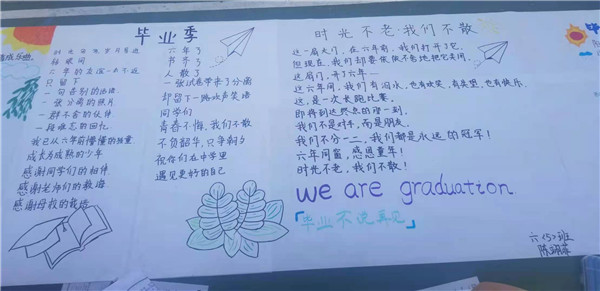 毕业季
转眼间
只留下
一句告别的话语
一张分离的照片
一群不舍的伙伴
一段难忘的回忆
我已从六年前懵懂的孩童
成长为成熟的少年
感谢同学们的相伴
感谢老师们的教诲
感谢母校的栽培
六年了
书旁了
人散了
一张试卷带来了分离
却留下一路欢声笑语
同学们
青春不悔,我们不散
不负韶华,只争朝夕
祝你们在中学里
遇见更好的自己
时光不老·我们不散
这一扇大门,在六年前,我们打开了它,
但现在,我们却要依依不舍地把它关闭。
这扇门,开了六年…
这六年间,我们有泪水,也有欢笑,有失望,也有快乐。
这,是一次长跑比赛,
即将到达终点的那一刻,
我们不是对手,而是朋友。
我们不分一二,我们都是永远的冠军!
六年同窗,感恩重年!
时光不老,我们不散!
we are graduation
「毕业不说再见」
六<5>班